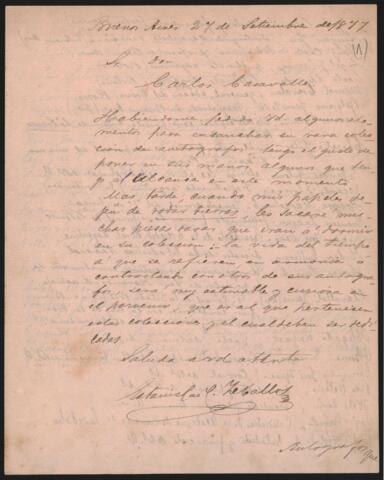 Buenos Aires 27 de Setiembre de 1877
(1)
Sr. Don
Carlos Casavalle
Habiendome pedido Vd. algunos ele-
mentos para ensanchar su rara colec-
cion de autógrafos tengo el gusto de
poner en sus manos algunos que ten-
go al alcance en este momento.
Mas tarde, cuando mis papeles de-
jen de rodar tierras, les sacaré mu-
chas piezas raras que iran á dormir
en su coleccion; la vida del tiempo
a que se refieren en armonia ó
contrastando con otros de sus autógra-
fos, será muy estimable y curiosa en
el porvenir, que es al que pertenecen
estas colecciones y el cual deben ser dedi-
cadas.
Saluda a vd atte
Estanislao S. Zeballos
Autógrafos que